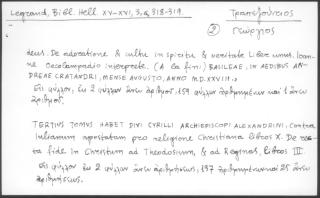 Legrand, Bibl. Hell. XV-XVI, 3, q 318-319.
Τραπεζούντιος
② Γεώργιος
deus. De adoratione & cultu in spiritu & veritate Liber unus. Ioan-
ne Oecolampadio interprete. (A la fin) BASILEAE, IN AEDIBUS AN-
DREAE CRATANDRI, MENSE AUGUSTO, ANNO M.D.XXVIII.
Εἰς φύλλον, ἐκ 2 φύλλων ἄνευ ἀριθμοῦ, 159 φύλλων ἠριθμημένων καὶ 1 ἄνευ
ἀριθμοῦ.
TERTIUS TOMUS HABET DIVI CYRILLI ARCHIEPISCOPI ALEXANDRINI, contra
Iulianum apostatam pro religione Christiana libros X. De rec-
ta fide in Christum ad Theodosium, & ad Reginas, libros III.
Εἰς φύλλον ἐκ 2 φύλλων ἄνευ ἀριθμήσεως, 137 ἠριθμημένων καὶ 25 ἄνευ
ἀριθμήσεως.